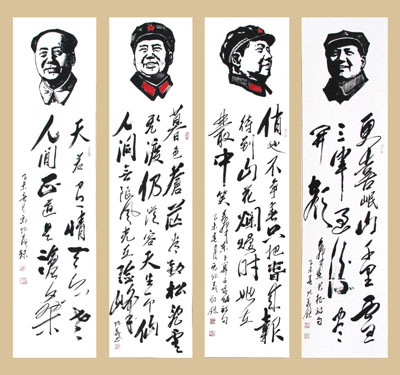 更喜岷山千里雪
三軍过后尽
开颜
俏也不争春只把春来報
待到山花烂熳時她在
丛中笑
暮色蒼茫看劲松乱雲
飛渡仍從容天生一个仙
人洞无限風光在險峰
天若有情天亦老
人间正道是滄桑